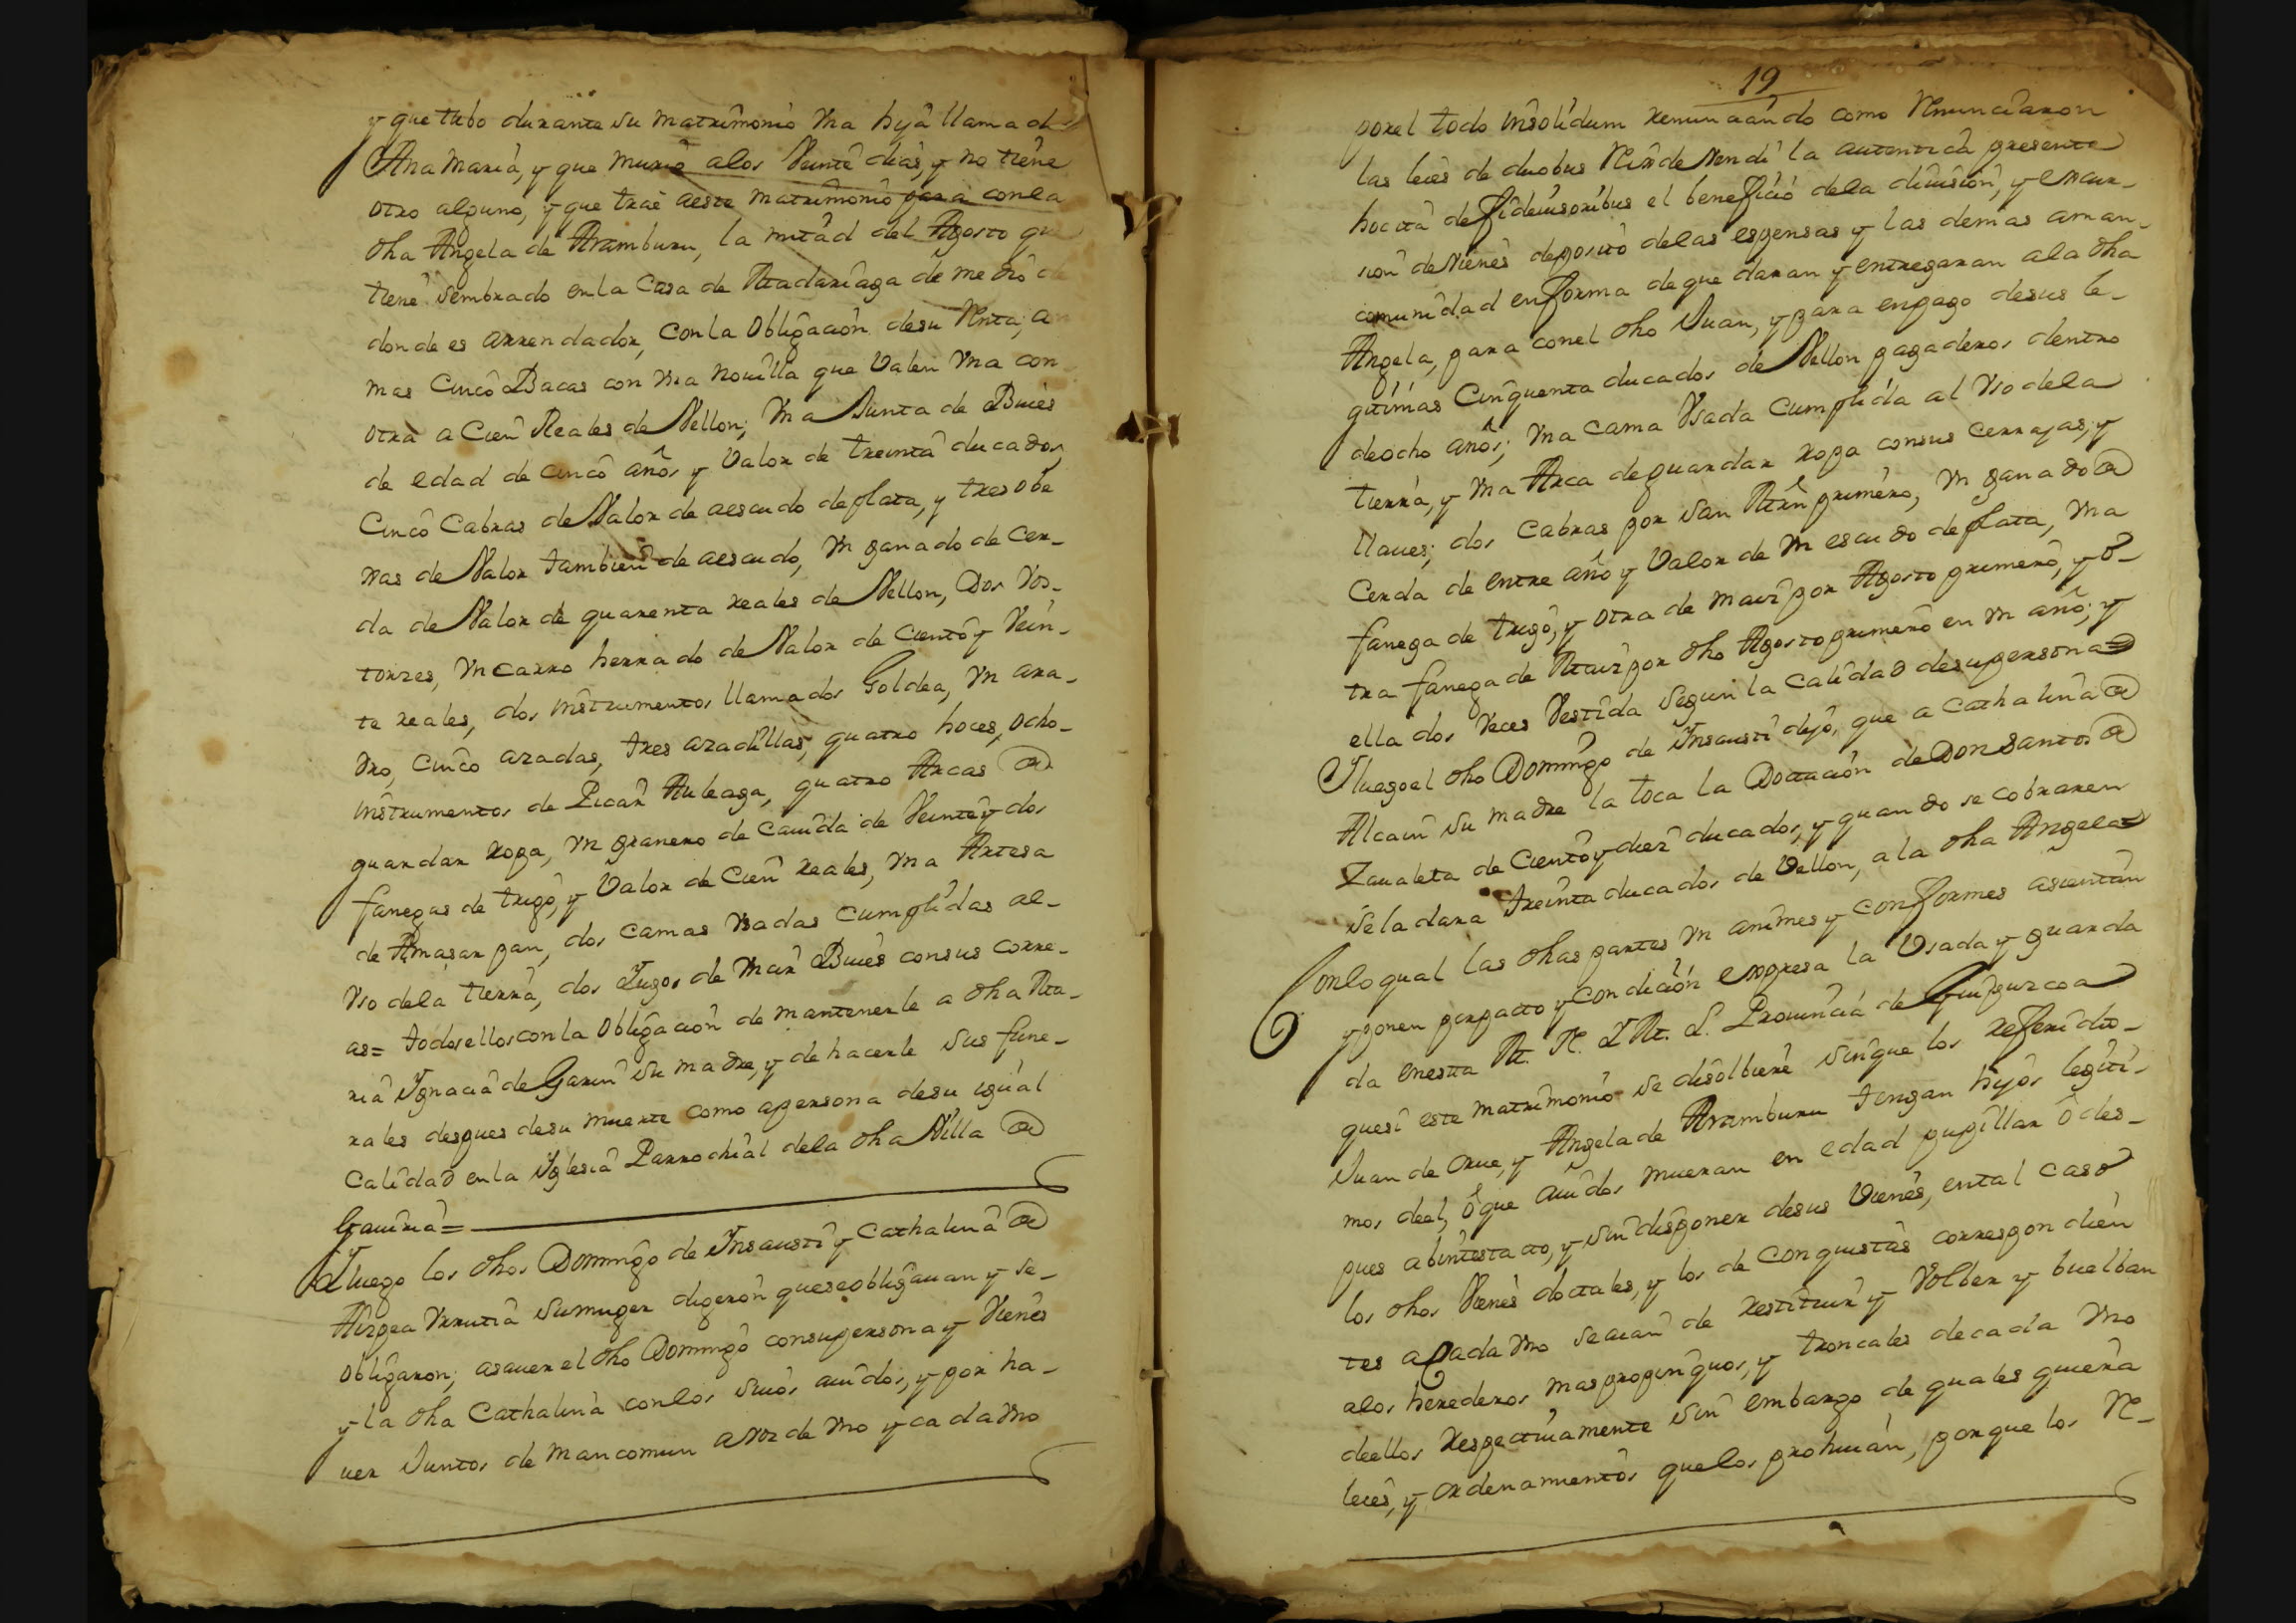 y que tubo durante su matrimonio Vna hija llamad
Ana Maria, y que murio a los Veinte dias, y no tiene
otro alguno, y que trae aeste matrimonio para con la
dha Angela de Aramburu, la mitad del Agosto que
tiene sembrado en la Casa de Madariaga de medio
donde es arrendador, con la obligacion desu Renta; a
mas Cinco Bacas con Vna nouilla que Valen Vna con
otra a Cien Reales de Vellon; Vna Junta de Bueis
de edad de cinco años y Valor de treinta ducados,
Cinco Cabras de Valor de aescudo de plata, y tres obe
xas de Valor tambien de aescudo, Vn ganado de Cer-
da de Valor de quarenta reales de Vellon, Dos Ros-
torzes, Vn carro herrado de Valor de ciento y Vein-
te reales, dos instrumentos llamados Goldea, Vn ara-
dro, cinco azadas, tres azadillas, quatro hoces, ocho
instrumentos de Picar Auleaga, quatro Arcas de
guardar ropa, Vn granero de cauida de Veinte y dos
fanegas de trigo, y Valor de Cien reales, Vna Artesa
de Amasar pan, dos camas Vsadas cumplidas al-
Vso dela tierra, dos Jugos de Vncir Bueis consus corre-
as= todos ellos con la obligacion de mantenerle a dha Ma-
ria Ignacia de Garin su madre, y de hacerle sus fune-
rales despues desu muerte como apersona desu igual
Calidad en la Iglesia Parrochial dela dha Villa de
Gauiria=
Y luego los dhos Domingo de Insausti y Cathalina de
Aizpea Vrrutia sumuger digeron queseobligauan y se-
obligaron; asauer el dho Domingo consupersona y Vienes
y la dha Cathalina conlos suios auidos, y por ha-
uer Juntos de mancomun a voz de Vno y cadaVno
19
porel todo insolidum renunciando como Renunciaron
las leies de duobus Reix de Vendi la autentica presente
hocita de fideiusoribus el beneficio dela diuision, y excur-
sion de Vienes deposito delas espensas y las demas aman-
comunidad enforma de que daran y entregaran ala dha
Angela, para conel dho Juan, y para enpago desus le-
gitimas Cinquenta ducados de Vellon pagaderos dentro
deocho años; Vna cama Vsada Cumplida al Vso dela
tierra, y Vna Arca deguardar ropa consus cerrajas, y
llaues; dos cabras por san Mrn primero, Vn ganado de
Cerda de entre año y Valor de Vn escudo de plata, Vna
fanega de trigo, y otra de maiz por Agosto primero, y o-
tra fanega de Maiz por dho Agosto primero en Vn año; y
ella dos Veces Vestida segun la calidad desupersona=
Y luego el dho Domingo de Insausti dijo, que a Cathalina de
Alcain su madre la toca la Dotacion de Don Santos de
Zaualeta de Ciento y diez ducados, y quando se cobraren
sele dara treinta ducados de Vellon, a la dha Angela=
Conlo qual las dhas partes Vn animes y conformes asientan
y ponen por pacto y condicion expresa la Vsada y guarda
da enesta M. N. Y M. L. Prouincia de Guipuzcoa
quesi este matrimonio se disolbiere sinque los referidos
Juan de Orue, y Angela de Aramburu tengan hijos legiti-
mos deel, o que auidos mueran en edad pupillar ô des-
pues abintestato, y sin disponer desus Vienes, ental caso
los dhos Vienes dotales, y los de conquistas correspondien
tes acada Vno seaian de restituir y Volber y buelban
alos herederos mas propinquos, y troncales de cada Vno
deellos respectiuamente sin embargo de quales quiera
leies, y ordenamientos quelos prohiuan, porque los Re-